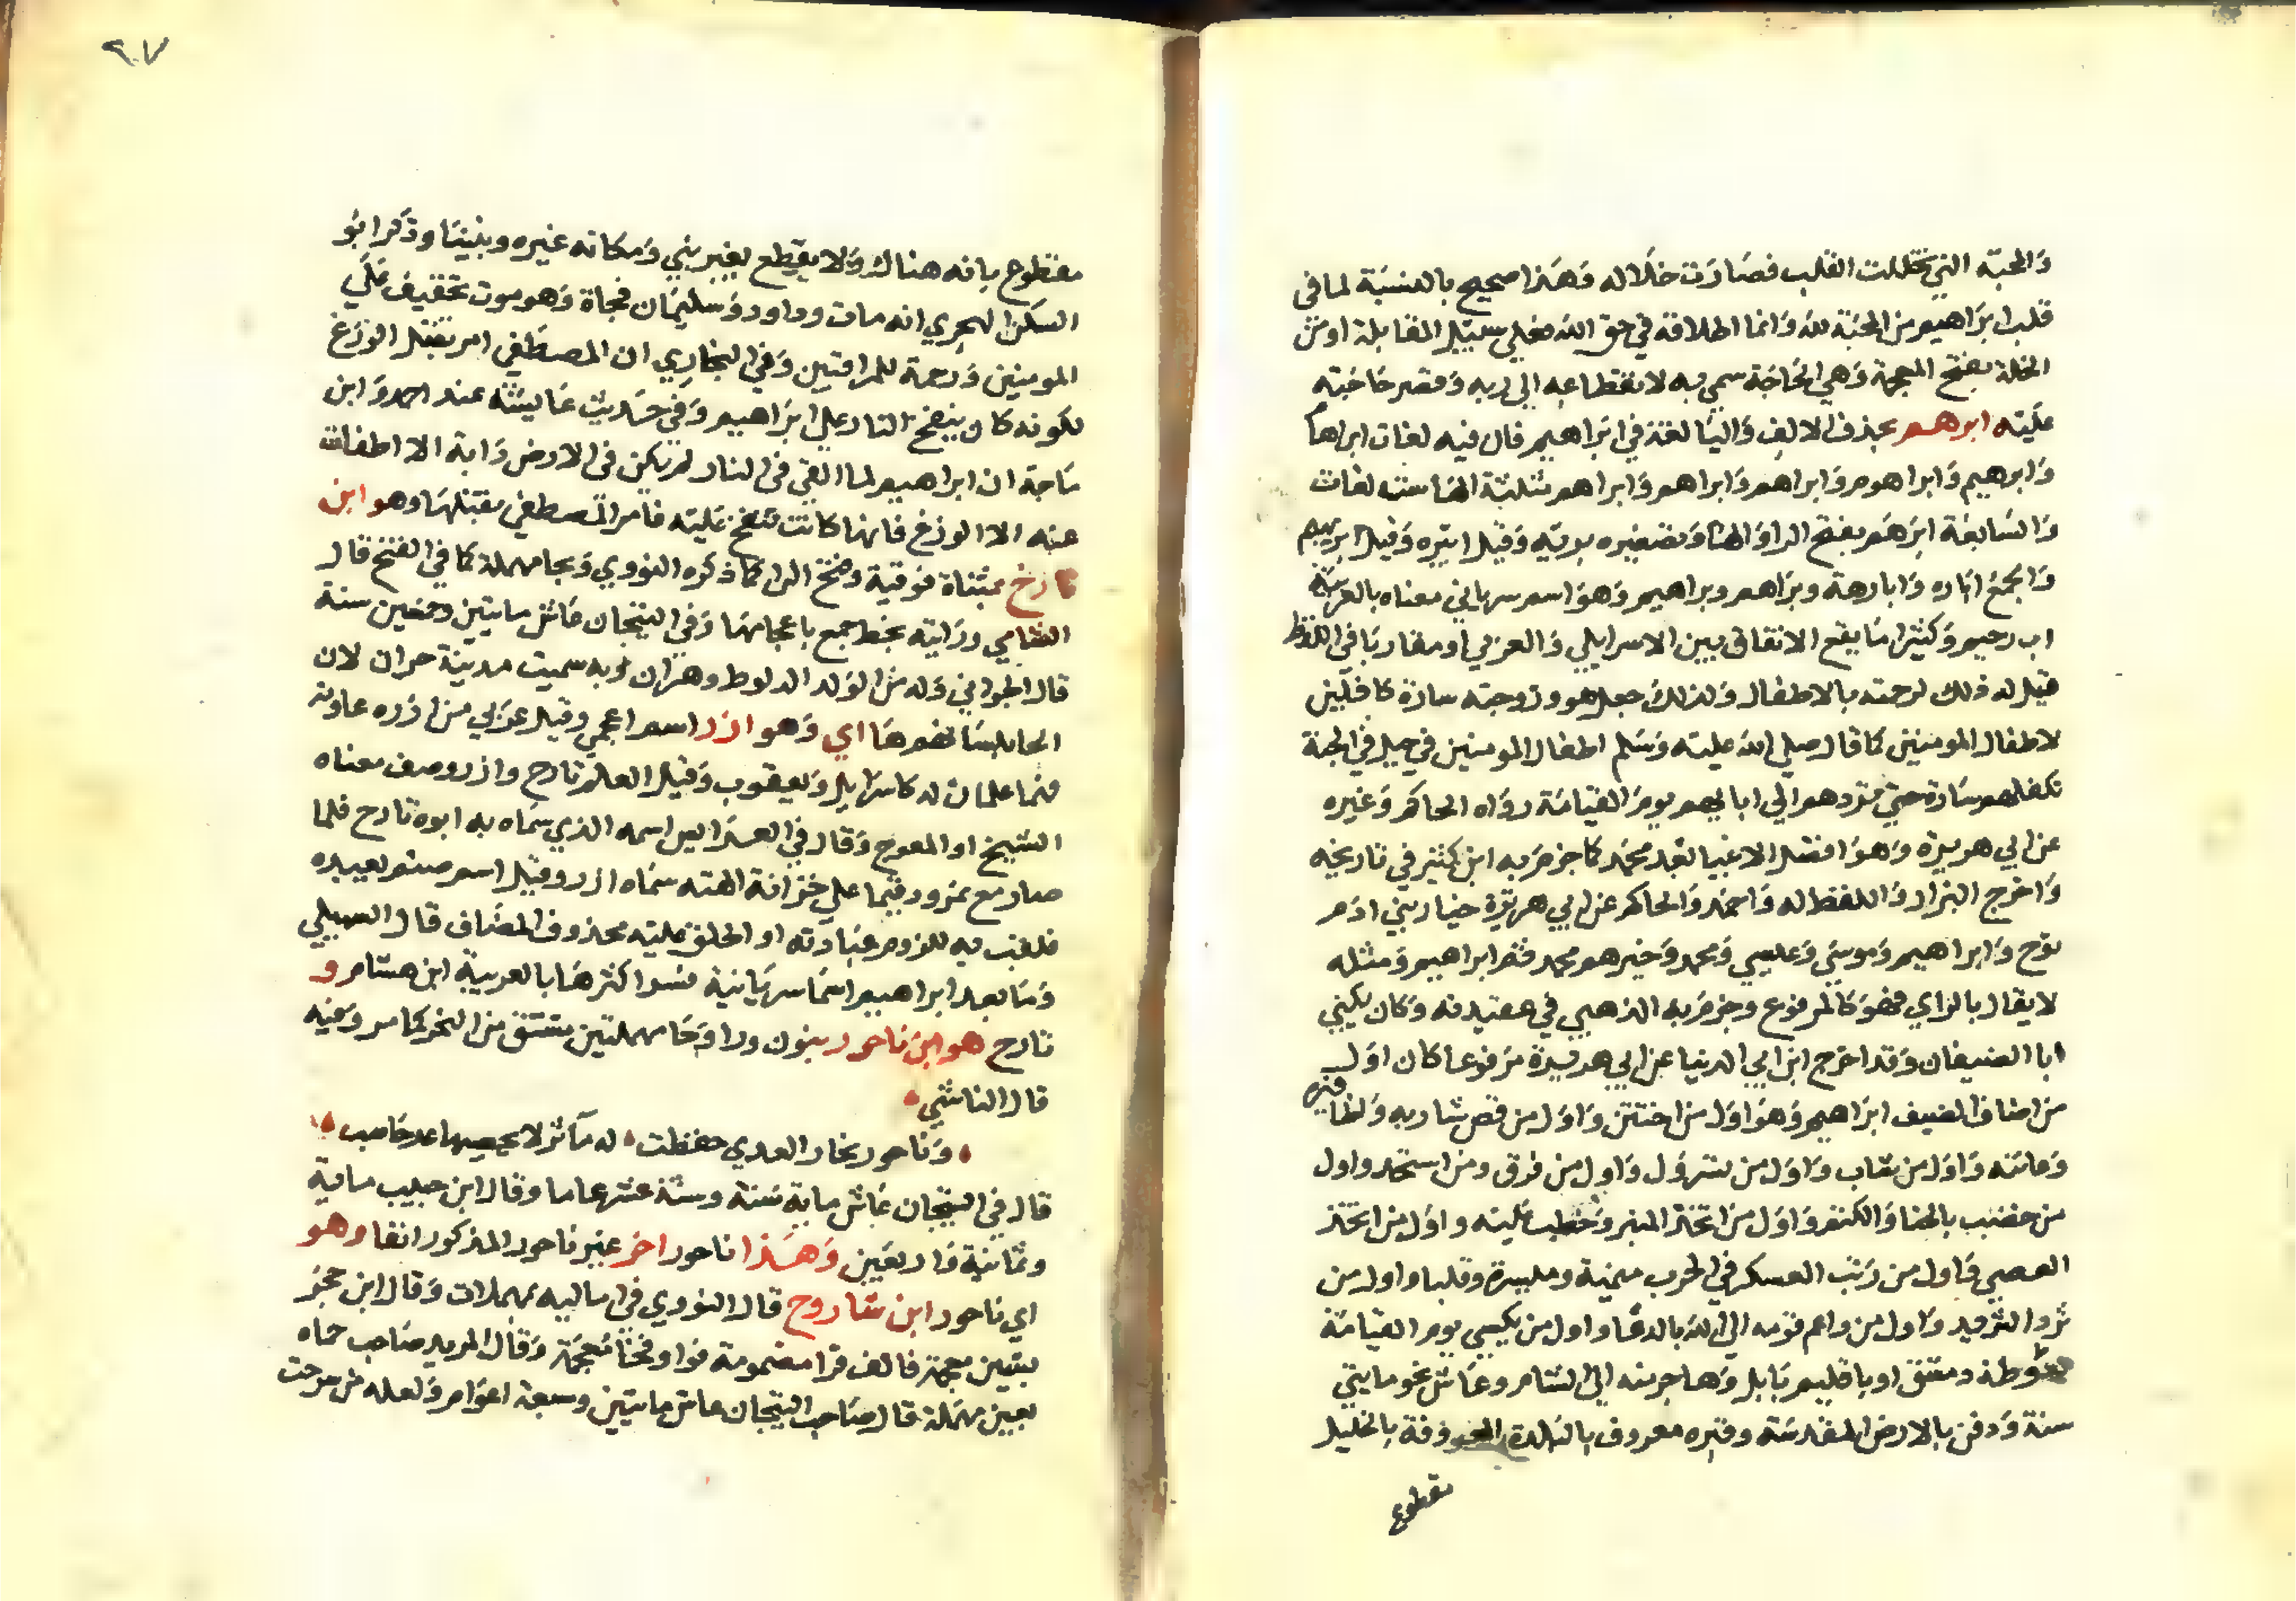 والمحبة التي تخللت القلب فصارت خلاله وهذا صحيح بالنسبة لما في
قلب ابراهيم من المحبة لله وانما اطلاقه في حق الله فعلي سبيل المقابلة او من
الخلة بفتح المعجمة وهي الحاجة سمي به لانقطاعه الي ربه وقصر حاجته
عليته ابرهم بحذف الالف واليا لغة في ابراهيم قال فيه لغات ابراهام
وابرهيم وابراهوم وابراهم وابراهم مثلثة الها ستة لغات
والسابعة ابرهم بفتح الرا والها وتصغيره بريه وقيل ابيره وقيل ابريهيم
والجمع اباره وابارهة وبراهم وبراهيم وهو اسم سرياني معناه بالعربية
اب رحيم وكثيرا ما يقع الاتفاق بين الاسرايلي والعربي او مقاربا في اللفظ
قيل له ذلك لرحمته بالاطفال ولذلك جعل هو وزوجته سارة كافلين
لاطفال المومنين كما قال صلي الله عليه وسلم اطفال المومنين في جبل في الجنة
تكفلهم سارة حتي تردهم الي ابايهم يوم القيامة رواه الحاكم وغيره
عن ابي هريرة وهو افضل الانبيا بعد محمد كما جزم به ابن كثير في تاريخه
واخرج البزار واللفظ له واحمد والحاكم عن ابي هريرة خيار بني ادم
نوح وابراهيم وموسي وعيسي ومحمد وخيرهم محمد ثم ابراهيم ومثله
لا يقال بالراي فهو كالمرفوع وجزم به الذهبي في عقيدته وكان يكني
ابا الضيفان وقد اخرج ابن ابي الدنيا عن ابي هريرة مرفوعا كان اول
من اضاف الضيف ابراهيم وهو اول من اختتن واول من قص شاربه وقلم اظافيره
وعانته واول من شاب واول من تسرول واول من فرق ومن استحد واول
من خضب بالحنا والكتم واول من اتخذ المنبر وخطب عليه واول من اتخذ
العصي واول من رتب العسكر في الحرب ميمنة وميسرة وقلبا واول من
ثرد الثريد واول من دعا قومه الي الله بالدعا واول من يكسي يوم القيامة
بغوطة دمشق او باقليم بابل وهاجر منه الي الشام وعاش نحو مايتي
سنة ودفن بالارض المقدسة وقبره معروف بالبلدة المعروفة بالخليل
مقطوع
٢٠٧
مقطوع بانه هناك ولا يقطع لغير نبي ومكانه غيره وبنينا وذكر ابو
السكن الهجري انه مات وداود وسليمان فجاة وهو موت تخفيف علي
المومنين ورحمة للمراقبين وفي البخاري ان المصطفي امر بقتل الوزغ
لكونه كان ينفخ النار علي ابراهيم وفي حديث عايشة عند احمد وابن
ماجة ان ابراهيم لما القي في النار لم يكن في الارض دابة الا اطفات
عنه الا الوزغ فانها كانت تنفخ عليه فامر المصطفي بقتلها وهو ابن
تارخ بمثناة فوقية وفتح الرا كما ذكره النووي وبحا مهملة كما في الفتح قال
الشامي ورايته بخط جمع باعجامها وفي التيجان عاش مايتين وخمسين سنة
قال الجواني ولد من الولد الد لوط وهران وبه سميت مدينة حران لان
الحا يلسانهم ها اي وهو ازر اسم اعجمي وقيل عربي من ازره عاونه
فهما علمان له كاسرايل ويعقوب وقيل العلم تارح وازر وصف معناه
الشيخ او المعوج وقال في العرايس اسمه الذي سماه به ابوه تارح فلما
صار مع نمرود قيما علي خزانة الهته سماه ازر وقيل اسم صنم يعبده
فلقب به للزوم عبادته او اطلق عليه بحذف المضاف قال السهيلي
وما بعد ابراهيم اسما سريانية فسر اكثرها بالعربية ابن هشام و
تارح هو ابن ناحور بنون ورا وحا مهملتين مشتق من النحر كما مر وفيه
قال الناشي
وناحور نحار العدي حفظت له مآثر لا يحصيها عد حاسب
قال في التيجان عاش ماية سنة وستة عشر عاما وقال ابن حبيب ماية
وثمانية واربعين وهذا ناحور اخر غير ناحور المذكور انفا وهو
اي ناحور ابن شاروح قال النووي في اماليه بمهملات وقال ابن حجر
بشين معجمة فالف فرا مضمومة فواو فخا معجمة وقال المويد صاحب حماه
بعين مهملة قال صاحب التيجان عاش مايتين وسبعة اعوام ولعله من سرحت